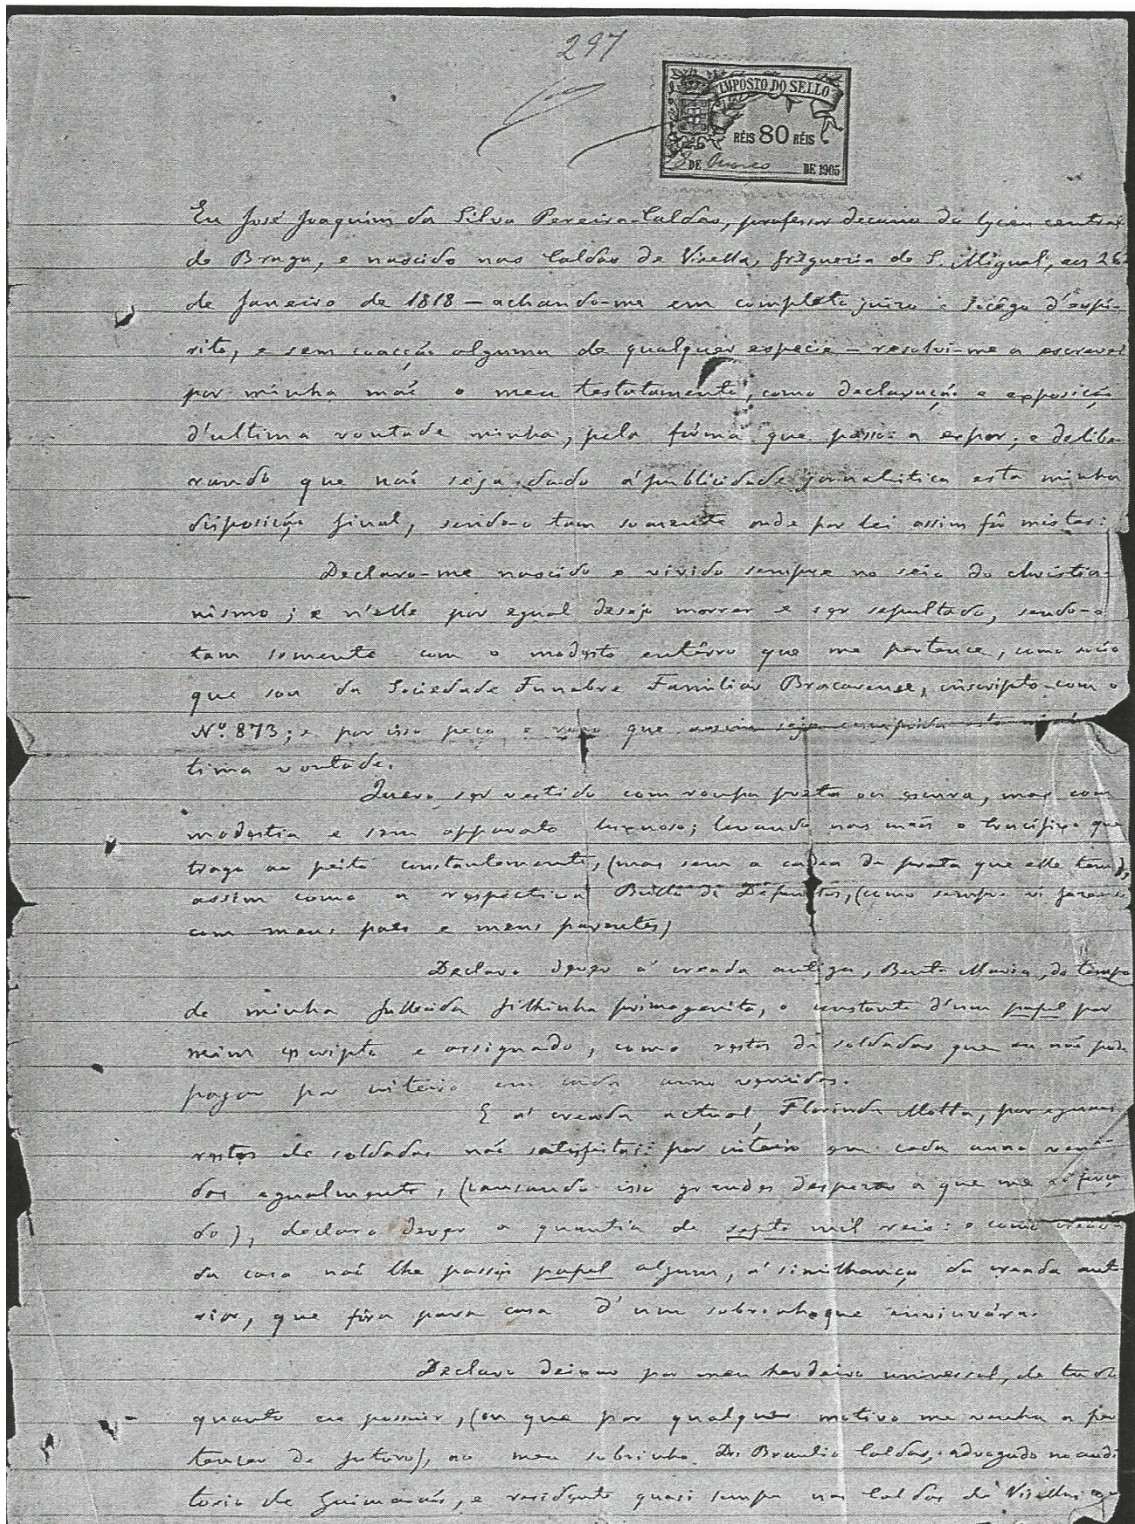 297
IMPOSTO DO SELLO
RÉIS 80 RÉIS
DE Março DE 1905
Eu José Joaquim da Silva Pereira-Caldas, professor decano do lyceu central
de Braga, e nascido nas Caldas de Vizella, freguezia de S. Miguel, aos 26
de Janeiro de 1818 — achando-me em completo juizo e socêgo d'espi-
rito, e sem coacção alguma de qualquer especie — resolvi-me a escrever
por minha mão o meu testatamento, como declaração e exposição
d'ultima vontade minha, pela fórma que passo a expor; e delibe-
rando que não seja dado á publicidade jornalistica esta minha
disposição final, sendo-o tam somente onde por lei assim fôr mister:
Declaro-me nascido e vivido sempre no seio do christia-
nismo; e n'elle por egual desejo morrer e ser sepultado, sendo-o
tam somente com o modesto entêrro que me pertence, como socio
que sou da Sociedade Funebre Familiar Bracarense, inscripto com o
Nº. 873; e por isso peço e rogo que assim seja cumprida esta
tima vontade.
Quero ser vestido com roupa preta ou escura, mas com
modestia e sem apparato luxuoso; levando nas mãos o crucifixo que
trago ao peito constantemente, (mas sem a cadea de prata que elle tem),
assim como a respectiva Bulla de Defuntos, (como sempre vi fazer
com meus paes e meus parentes)
Declaro dever á creada antiga, Bento Maria, do tempo
de minha fallecida filhinha primogenita, o constante d'um papel por
mim escripto e assignado, como restos de soldadas que eu não pude
pagar por inteiro em cada anno vencidos.
E á creada actual, Florinda Motta, por eguaes
restos de soldadas não satisfeitas por inteiro em cada anno venci-
dos egualmente, (causando isso grandes despezas a que me
do), declaro dever a quantia de septe mil reis: e como creada
da casa não lhe passei papel algum, á similhança da creada ante-
rior, que fôra para casa d'um sobrinho que enviuvára.
Declaro deixar por meu herdeiro universal, de tudo
quanto eu possuir, (ou que por qualquer motivo me venha a per-
tencer de futuro), ao meu sobrinho Dr. Braulio Caldas, advogado no audi-
torio de Guimarães, e residente quasi sempre nas Caldas de Vizella;